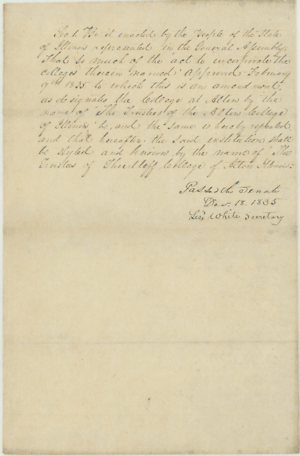 Sec 1. Be it enacted by the People of the State
of Illinois represented in the General Assembly
That so much of the act to incorporate the
colleges therein named, approved February
9th 1835 to which this is an amendment,
as designates the College at Alton by the
name of The Trustees of the Alton College
of Illinois be, and the same is hereby repealed
and that hereafter the said institution shall
be styled and known by the name of The
Trustees of Shurtleff College of Alton Illinois
Passed the Senate
Dec. 18. 1835
Leo White Secretary